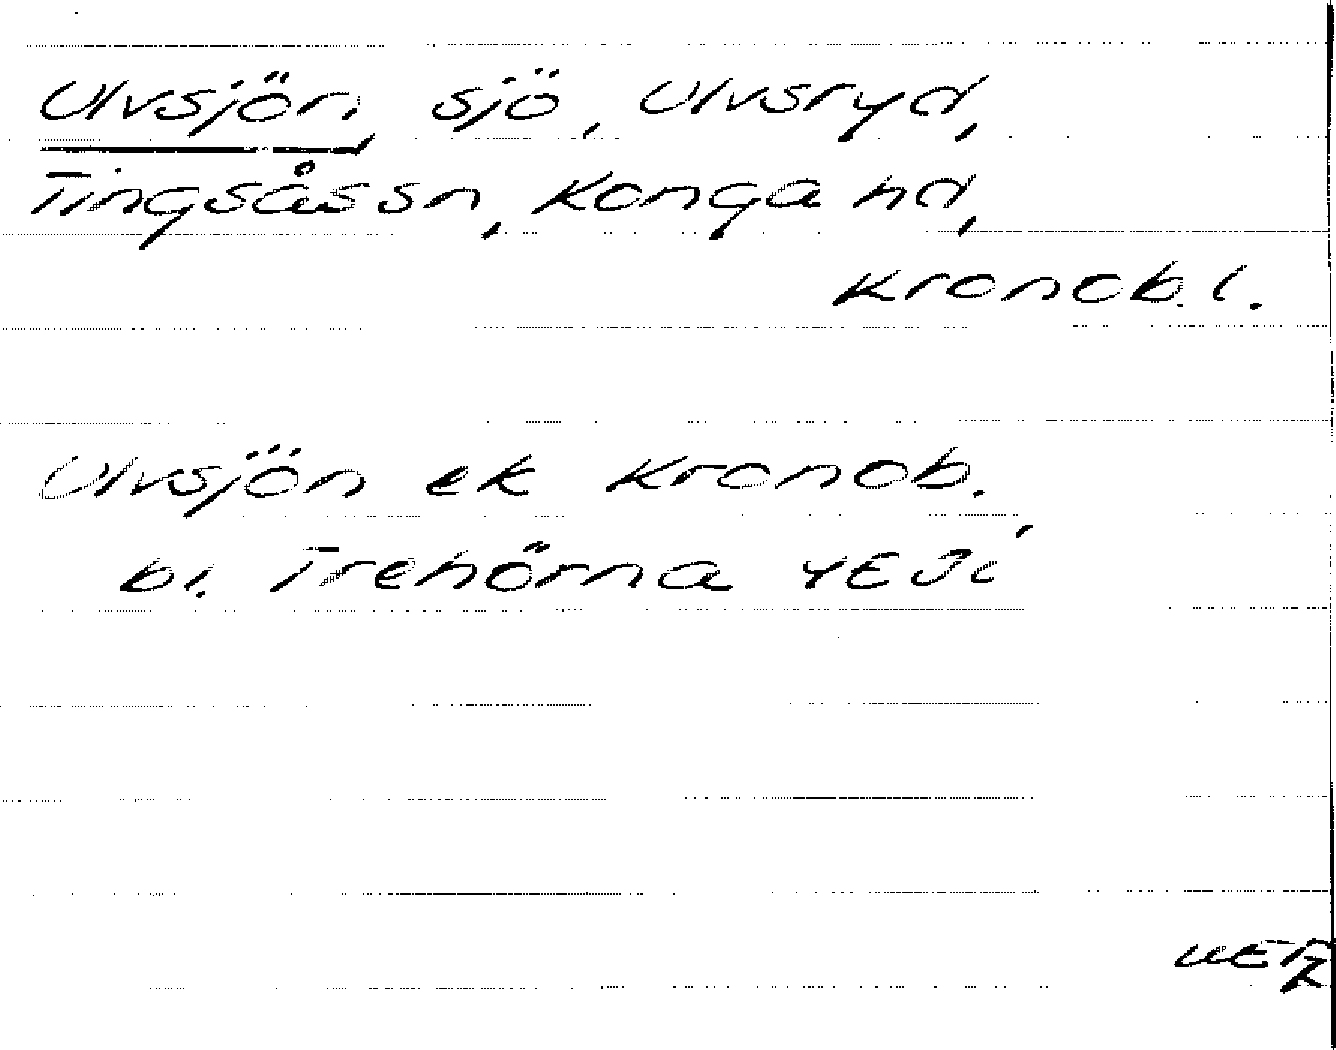 Ulvsjön, sjö, Ulvsryd,
Tingsås sn, Konga hd,
Kronob. l.
Ulvsjön ek Kronob.
bl. Trehörna 4E